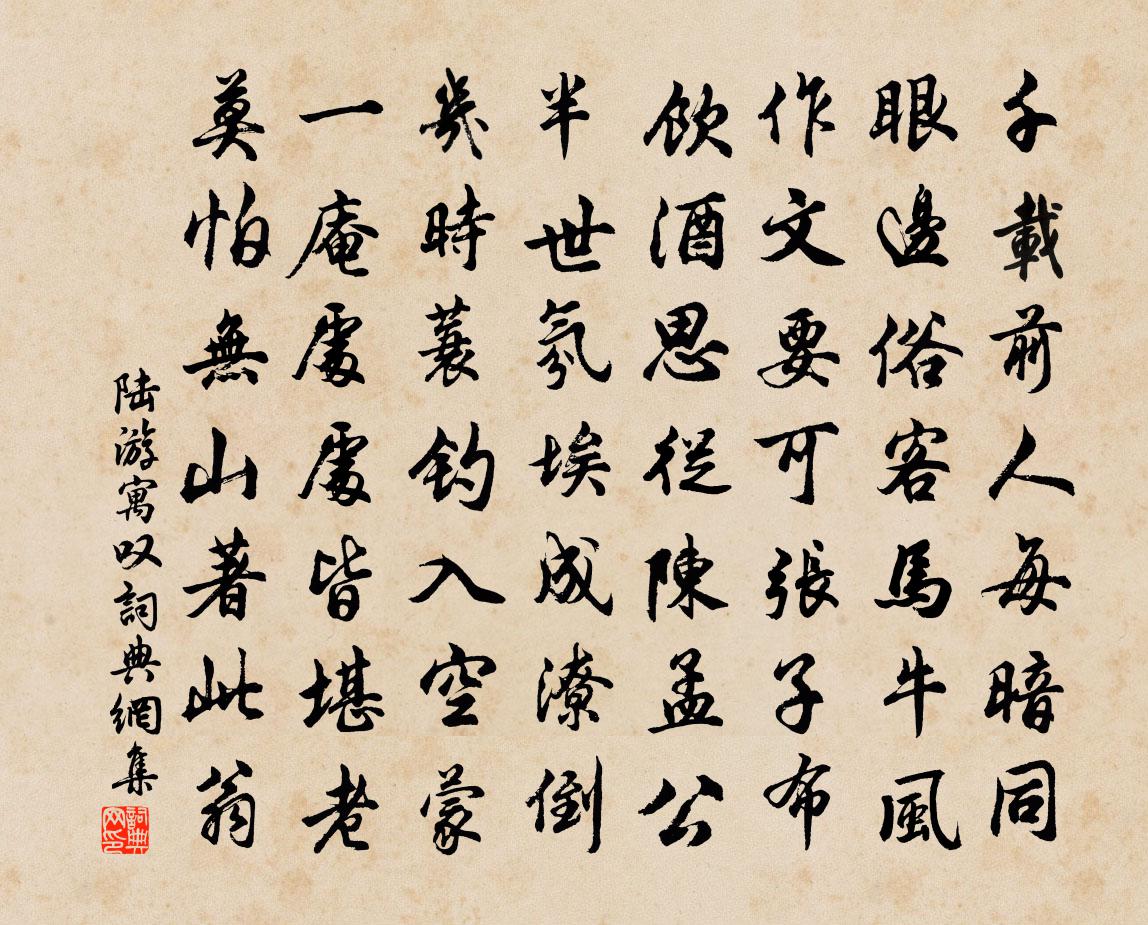 千載前人每暗同
眼邊俗客馬牛風
作文要可張子布
飲酒思從陳孟公
半世氛埃成潦倒
幾時蓑釣入空蒙
一庵處處皆堪老
莫怕無山著此翁
陆游寓叹詞典網集
詞典网印